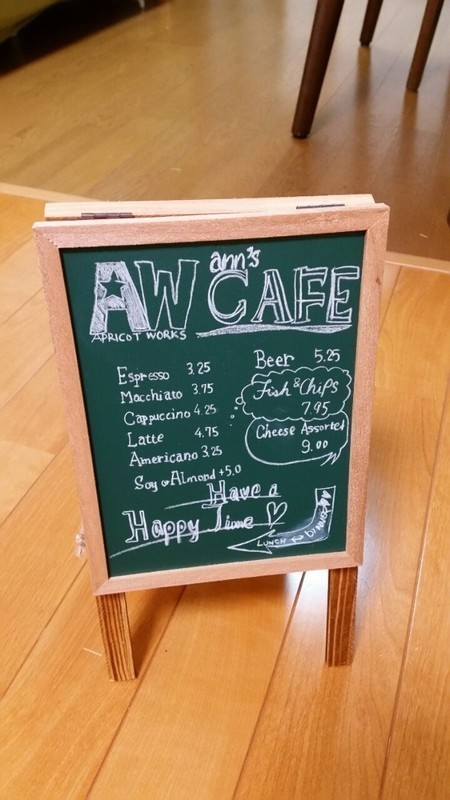 AW ann's CAFE
APRICOT WORKS
Espresso 3.25
Macchiato 3.75
Cappuccino 4.25
Latte 4.75
Americano 3.25
Soy or Almond +5.0
Beer 5.25
Fish & Chips
7.95
Cheese Assorted
9.00
Have a
Happy Time
LUNCH